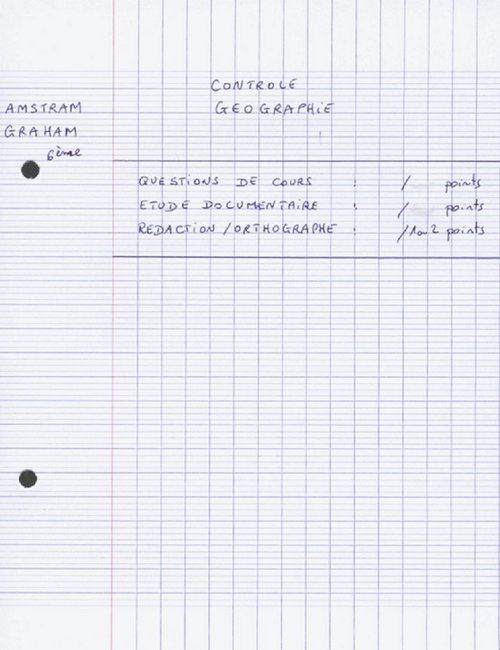 CONTROLE
AMSTRAM GEOGRAPHiE
GRAHAM
6ème
QUESTiONS DE COURS : / points
ETUDE DOCUMENTAiRE : / points
REDACTiON / ORTHOGRAPHE : /1ou2 points